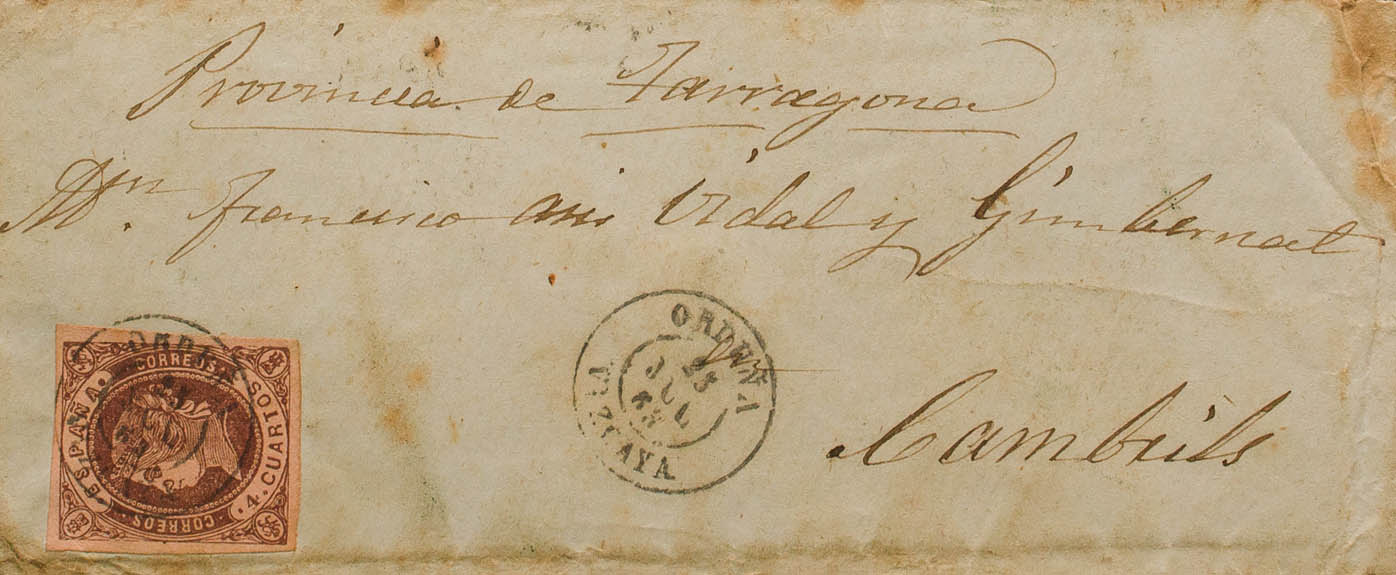 Provincia de Tarragona
Mn. Francisco Vidal y Gimbernat
Cambrils
ORDUÑA
23
JUL
63
VIZCAYA
CORREOS
ESPAÑA
4 CUARTOS
CORREOS